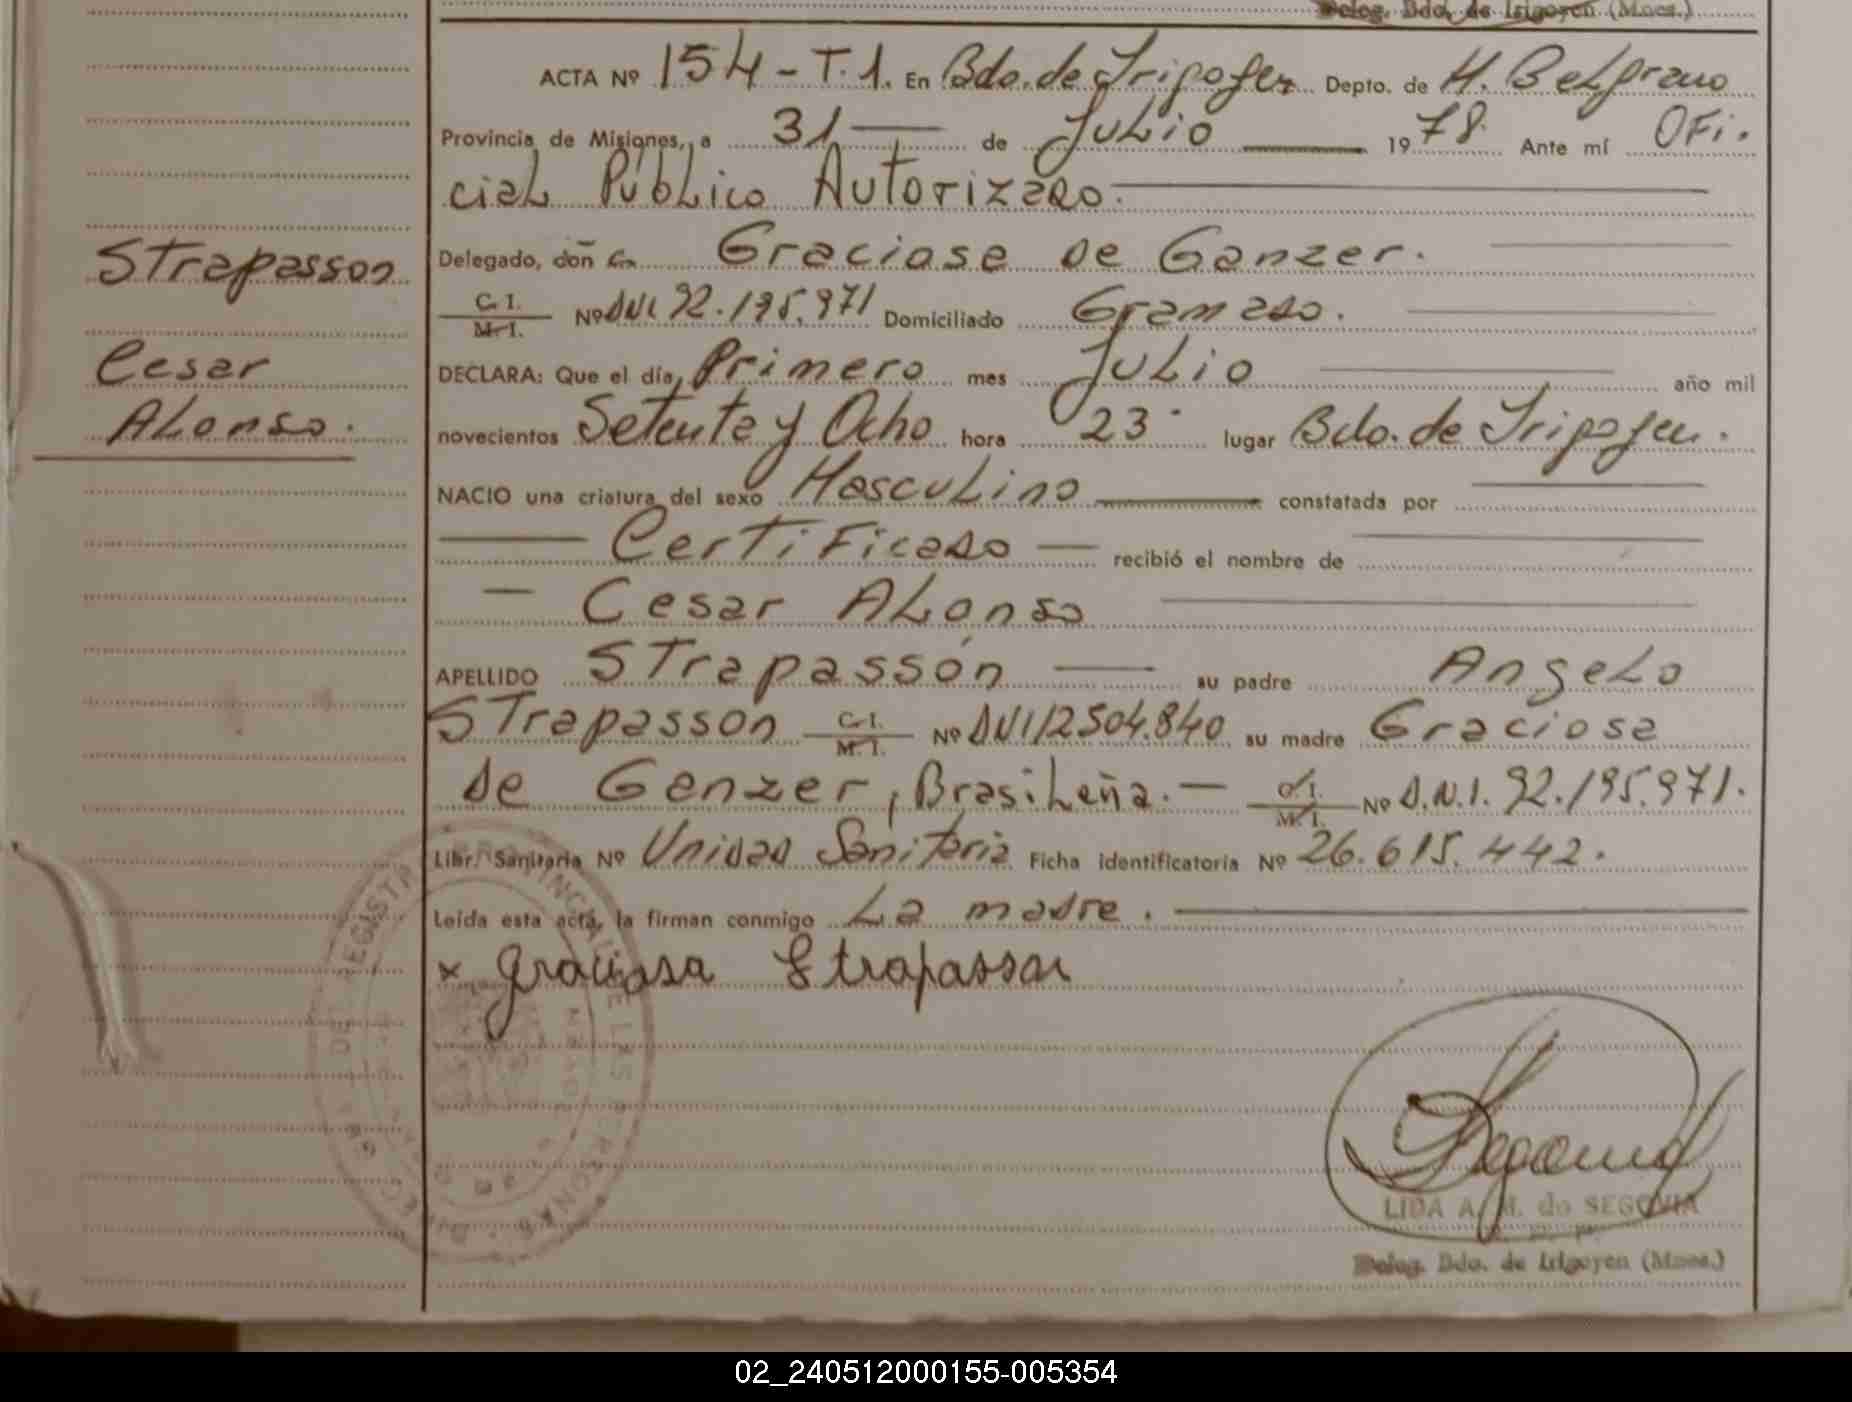 Deleg. Bdo. de Irigoyen (Mnes.)
ACTA Nº 154 - T. 1. En Bdo. de Irigoyen Depto. de H. Belgrano
Provincia de Misiones, a 31 de Julio 1978. Ante mí Ofi.
cial Público Autorizado.
Strapasson
Delegado, don Graciosa de Ganzer.
C. I.
M. I. Nº DNI. 92.195.971 Domiciliado Gramado.
Cesar
DECLARA: Que el día, Primero mes Julio año mil
Alonso.
novecientos Setenta y Ocho hora 23 lugar Bdo. de Irigoyen.
NACIO una criatura del sexo Masculino constatada por
Certificado recibió el nombre de
Cesar Alonso
APELLIDO Strapassón su padre Angelo
Strapasson C. I.
M. I. Nº DNI 12504.840 su madre Graciosa
de Ganzer, Brasileña. C. I.
M. I. Nº D.N.I. 92.195.971.
Libr. Sanitaria Nº Unidad Sanitaria Ficha identificatoria Nº 26.615.442.
Leída esta acta, la firman conmigo La madre.
x Graciosa Strapasson
DIRECCION GRAL. DEL REGISTRO PROVINCIAL DE LAS PERSONAS
LIDA A. M. de SEGOVIA
Deleg. Bdo. de Irigoyen (Mnes.)
02_240512000155-005354